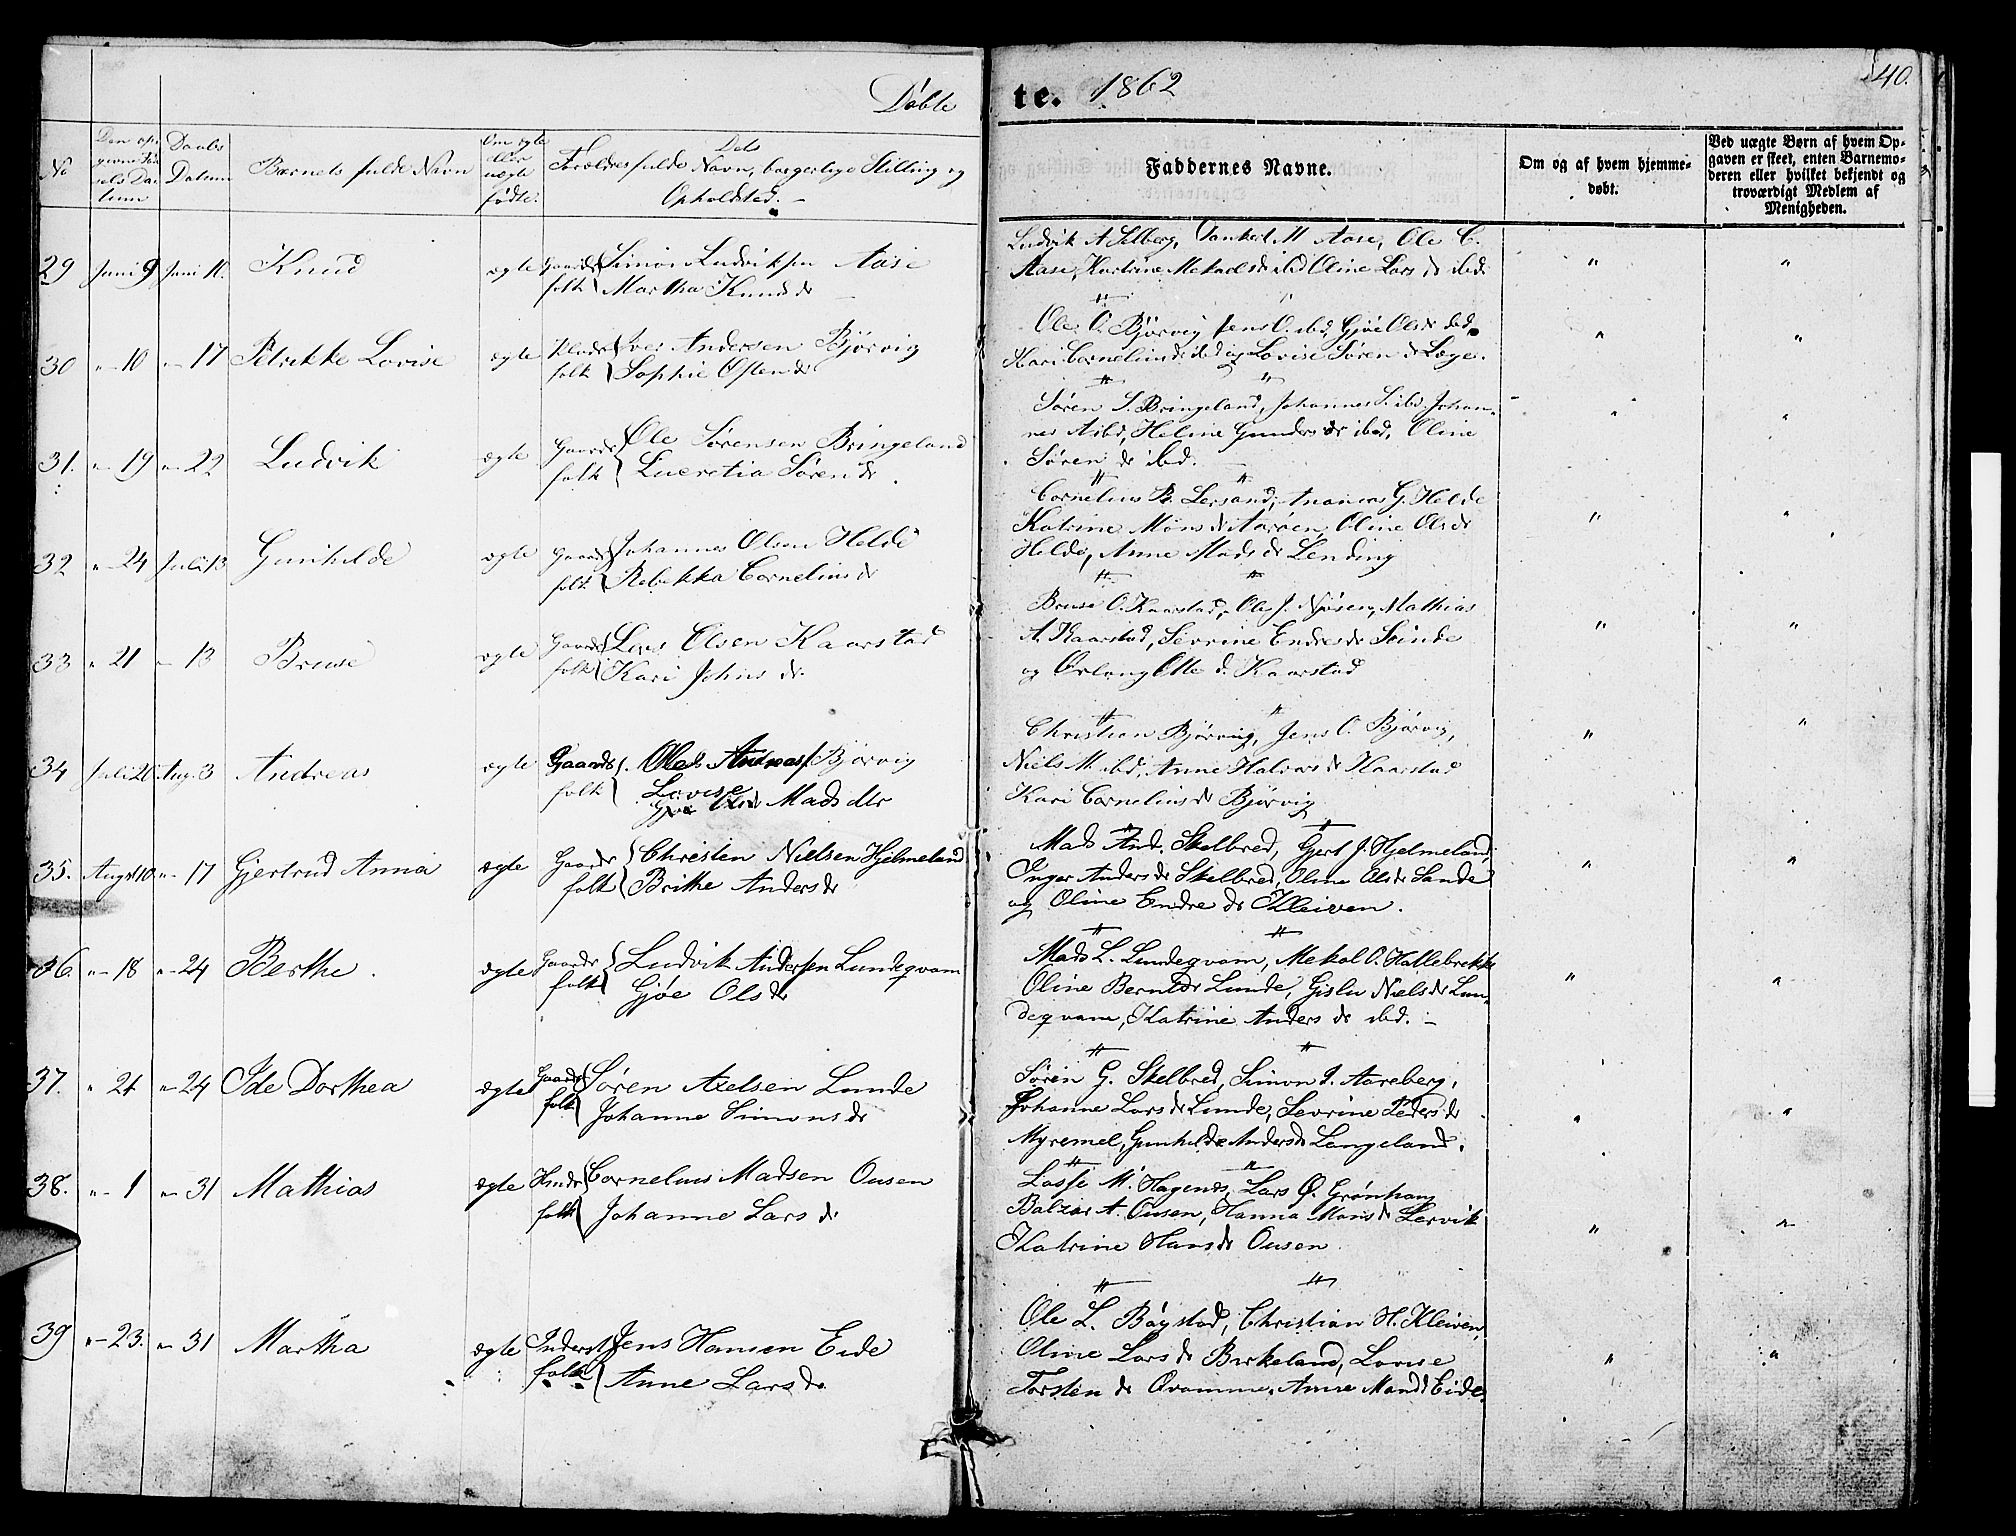 Døbte
te. 1862
40.
No
Den opgivne Fødsels Datum
Daabs Datum
Barnets fulde Navn
Om ægte eller uægte fødte.
Forældres fulde Navn, borgerlige Stilling og Opholdsted.
Faddernes Navne.
Om og af hvem hjemme-
døbt.
Ved uægte Børn af hvem Op-
gaven er skeet, enten Barnemo-
deren eller hvilket bekjendt og
troværdigt Medlem af
Menigheden.
29 Juni 9 Juni 11. Knud ægte Gaardr folk Simon Ludviksen Aase
Martha Knuds dr
Ludvik A Solberg, Tankert M Aase, Ole C.
Aase, Katrine Mekaels dr ibd Oline Lars dr ibd.
30 " 10 " 17 Petrikke Lovise ægte folk Iver Andersen Bjørvig
Sophie Ostens dr
Ole O. Bjørvig Jens O. ibd, Gjøe Ols dr ibd,
Kari Cornelius dr ibd og Lovise Søren dr Loge.
31. " 19 " 22 Ludvik ægte Gaardr folk Ole Sørensen Bringeland
Lucretia Søren dr
Søren S. Bringeland, Johannes S. ibd, Johan-
nes A ibd, Heline Gunders dr ibd, Oline
Søren dr ibd.
32 " 24 Juli 13 Gunhilde ægte Gaardr folk Johannes Olsen Helde
Rebekka Cornelius dr
Cornelius R. Lersand, G. Helde
Katrine Mons dr Aarøen, Oline Ols dr
Helde, Anne Mads dr Lending
33 " 21 " 13 Bruse ægte Gaardr folk Lars Olsen Kaarstad
Kari Johns dr
Bruse O. Kaarstad, Ole J. Njøsen, Mathias
A. Kaarstad, Sevrine Endres dr Svinde
og Otte d. Kaarstad
34 Juli 20. Aug. 3 Andreas ægte Gaards folk Ole Andreas s. Bjørvig
Lovise Mads dtr
Christian Bjørvig, Jens O. Bjørvig,
Niels M. ibd, Anne Halvors dr Kaarstad
Kari Cornelius dr Bjørvig
35. August 10. " 17 Gjertrud Anna ægte Gaardr folk Christen Nielsen Hjelmeland
Brithe Anders dr
Mads And. Skelbred, Gjert J. Hjelmeland,
Inger Anders dr Skelbred, Oline Ols dr Sande
og Oline Endre dr Kleiven.
36 " 18 " 24 Berthe. ægte Gaardr folk Ludvik Andersen Lundeqvam
Gjøe Ols dr
Mads L. Lundeqvam, Mekal O. Hallebrekke
Oline Bernts dr Lunde, Gislu Niels dr Lun-
deqvam, Katrine Anders dr ibd.
37. " 21 " 24 Ide Dorthea ægte Gaardr folk Søren Axelsen Lunde
Johanne Simons dr
Søren G. Skelbred, Simon I. Aareberg,
Johanne Lars dr Lunde, Sevrine Peders dr
Myremel, Gunhilde Anders dr Langeland.
38. " 1 " 31 Mathias ægte folk Cornelius Madsen Ousen
Johanne Lars dr
Lasse M. Hagenes, Lars O. Grønhaug
Balzar A. Ousen, Hanna Mons dr Lervik
Katrine Hans dr Ousen
39 " 23. " 31 Martha ægte Inderst folk Jens Hansen Eide
Anne Lars dr
Ole L. Bøystad, Christian H. Kleiven,
Oline Lars dr Birkeland, Lovise
Torsten dr Qvamme, Anne Mons dr Eide